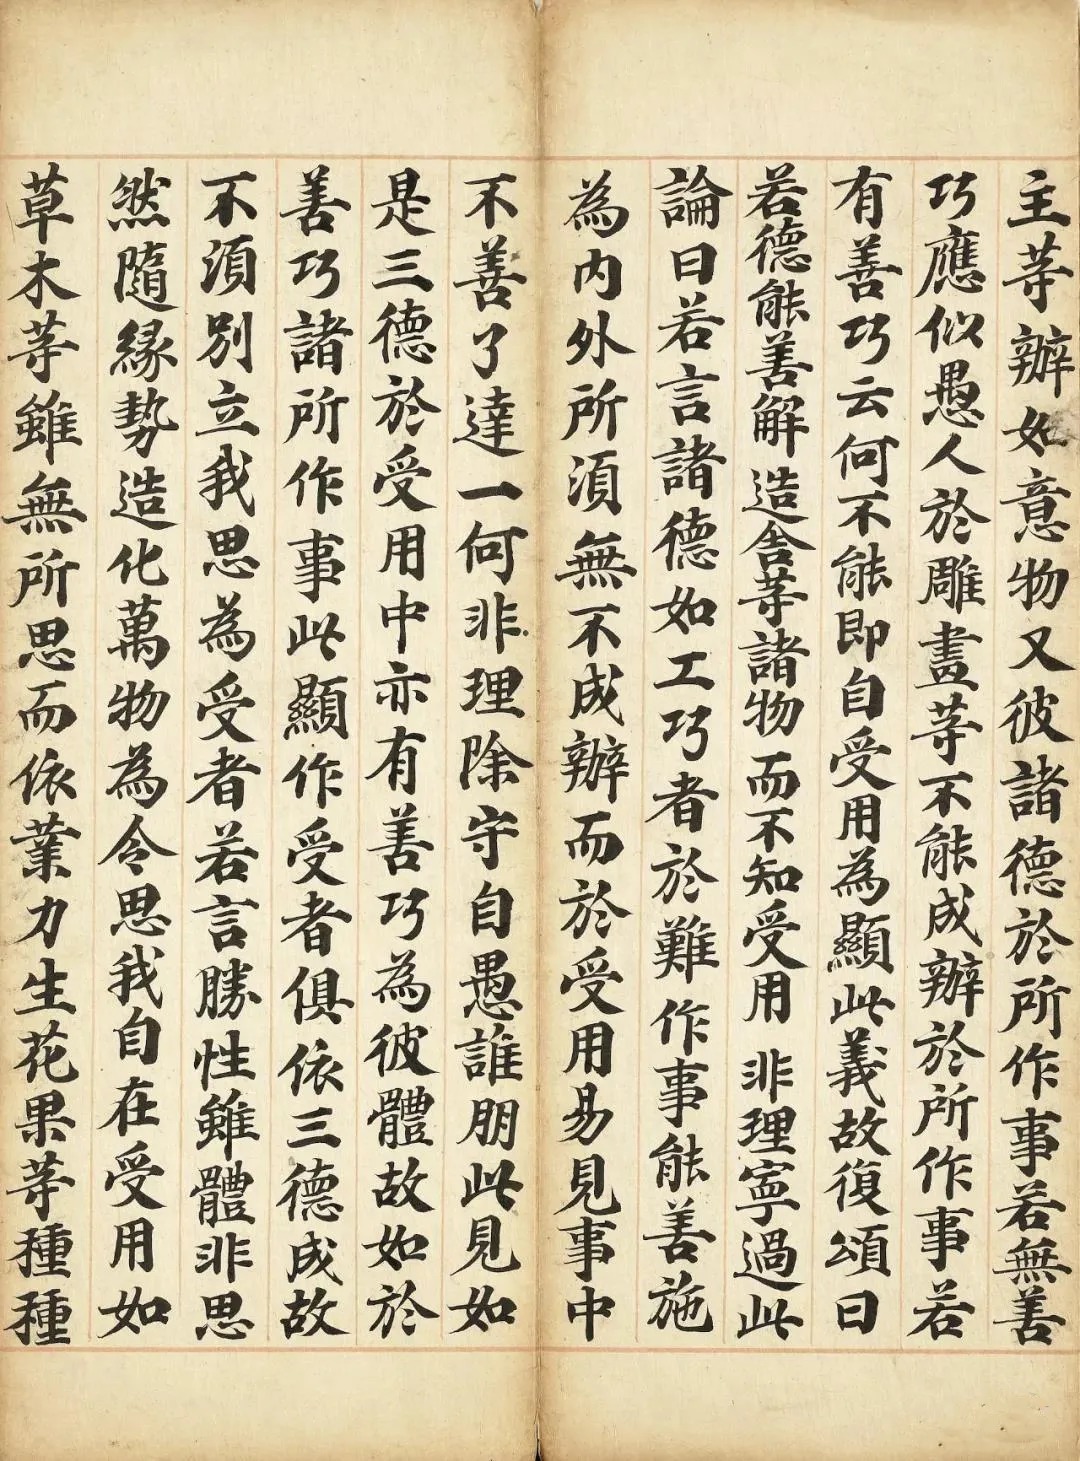 主等辦如意物又彼諸德於所作事若無善
巧應似愚人於雕畫等不能成辦於所作事若
有善巧云何不能即自受用為顯此義故復頌曰
若德能善解 造舍等諸物 而不知受用 非理寧過此
論曰若言諸德如工巧者於難作事能善施
為內外所須無不成辦而於受用易見事中
不善了達一何非理除守自愚誰朋此見如
是三德於受用中亦有善巧為彼體故如於
善巧諸所作事此顯作受者俱依三德成故
不須別立我思為受者若言勝性雖體非思
然隨緣勢造化萬物為令思我自在受用如
草木等雖無所思而依業力生花果等種種